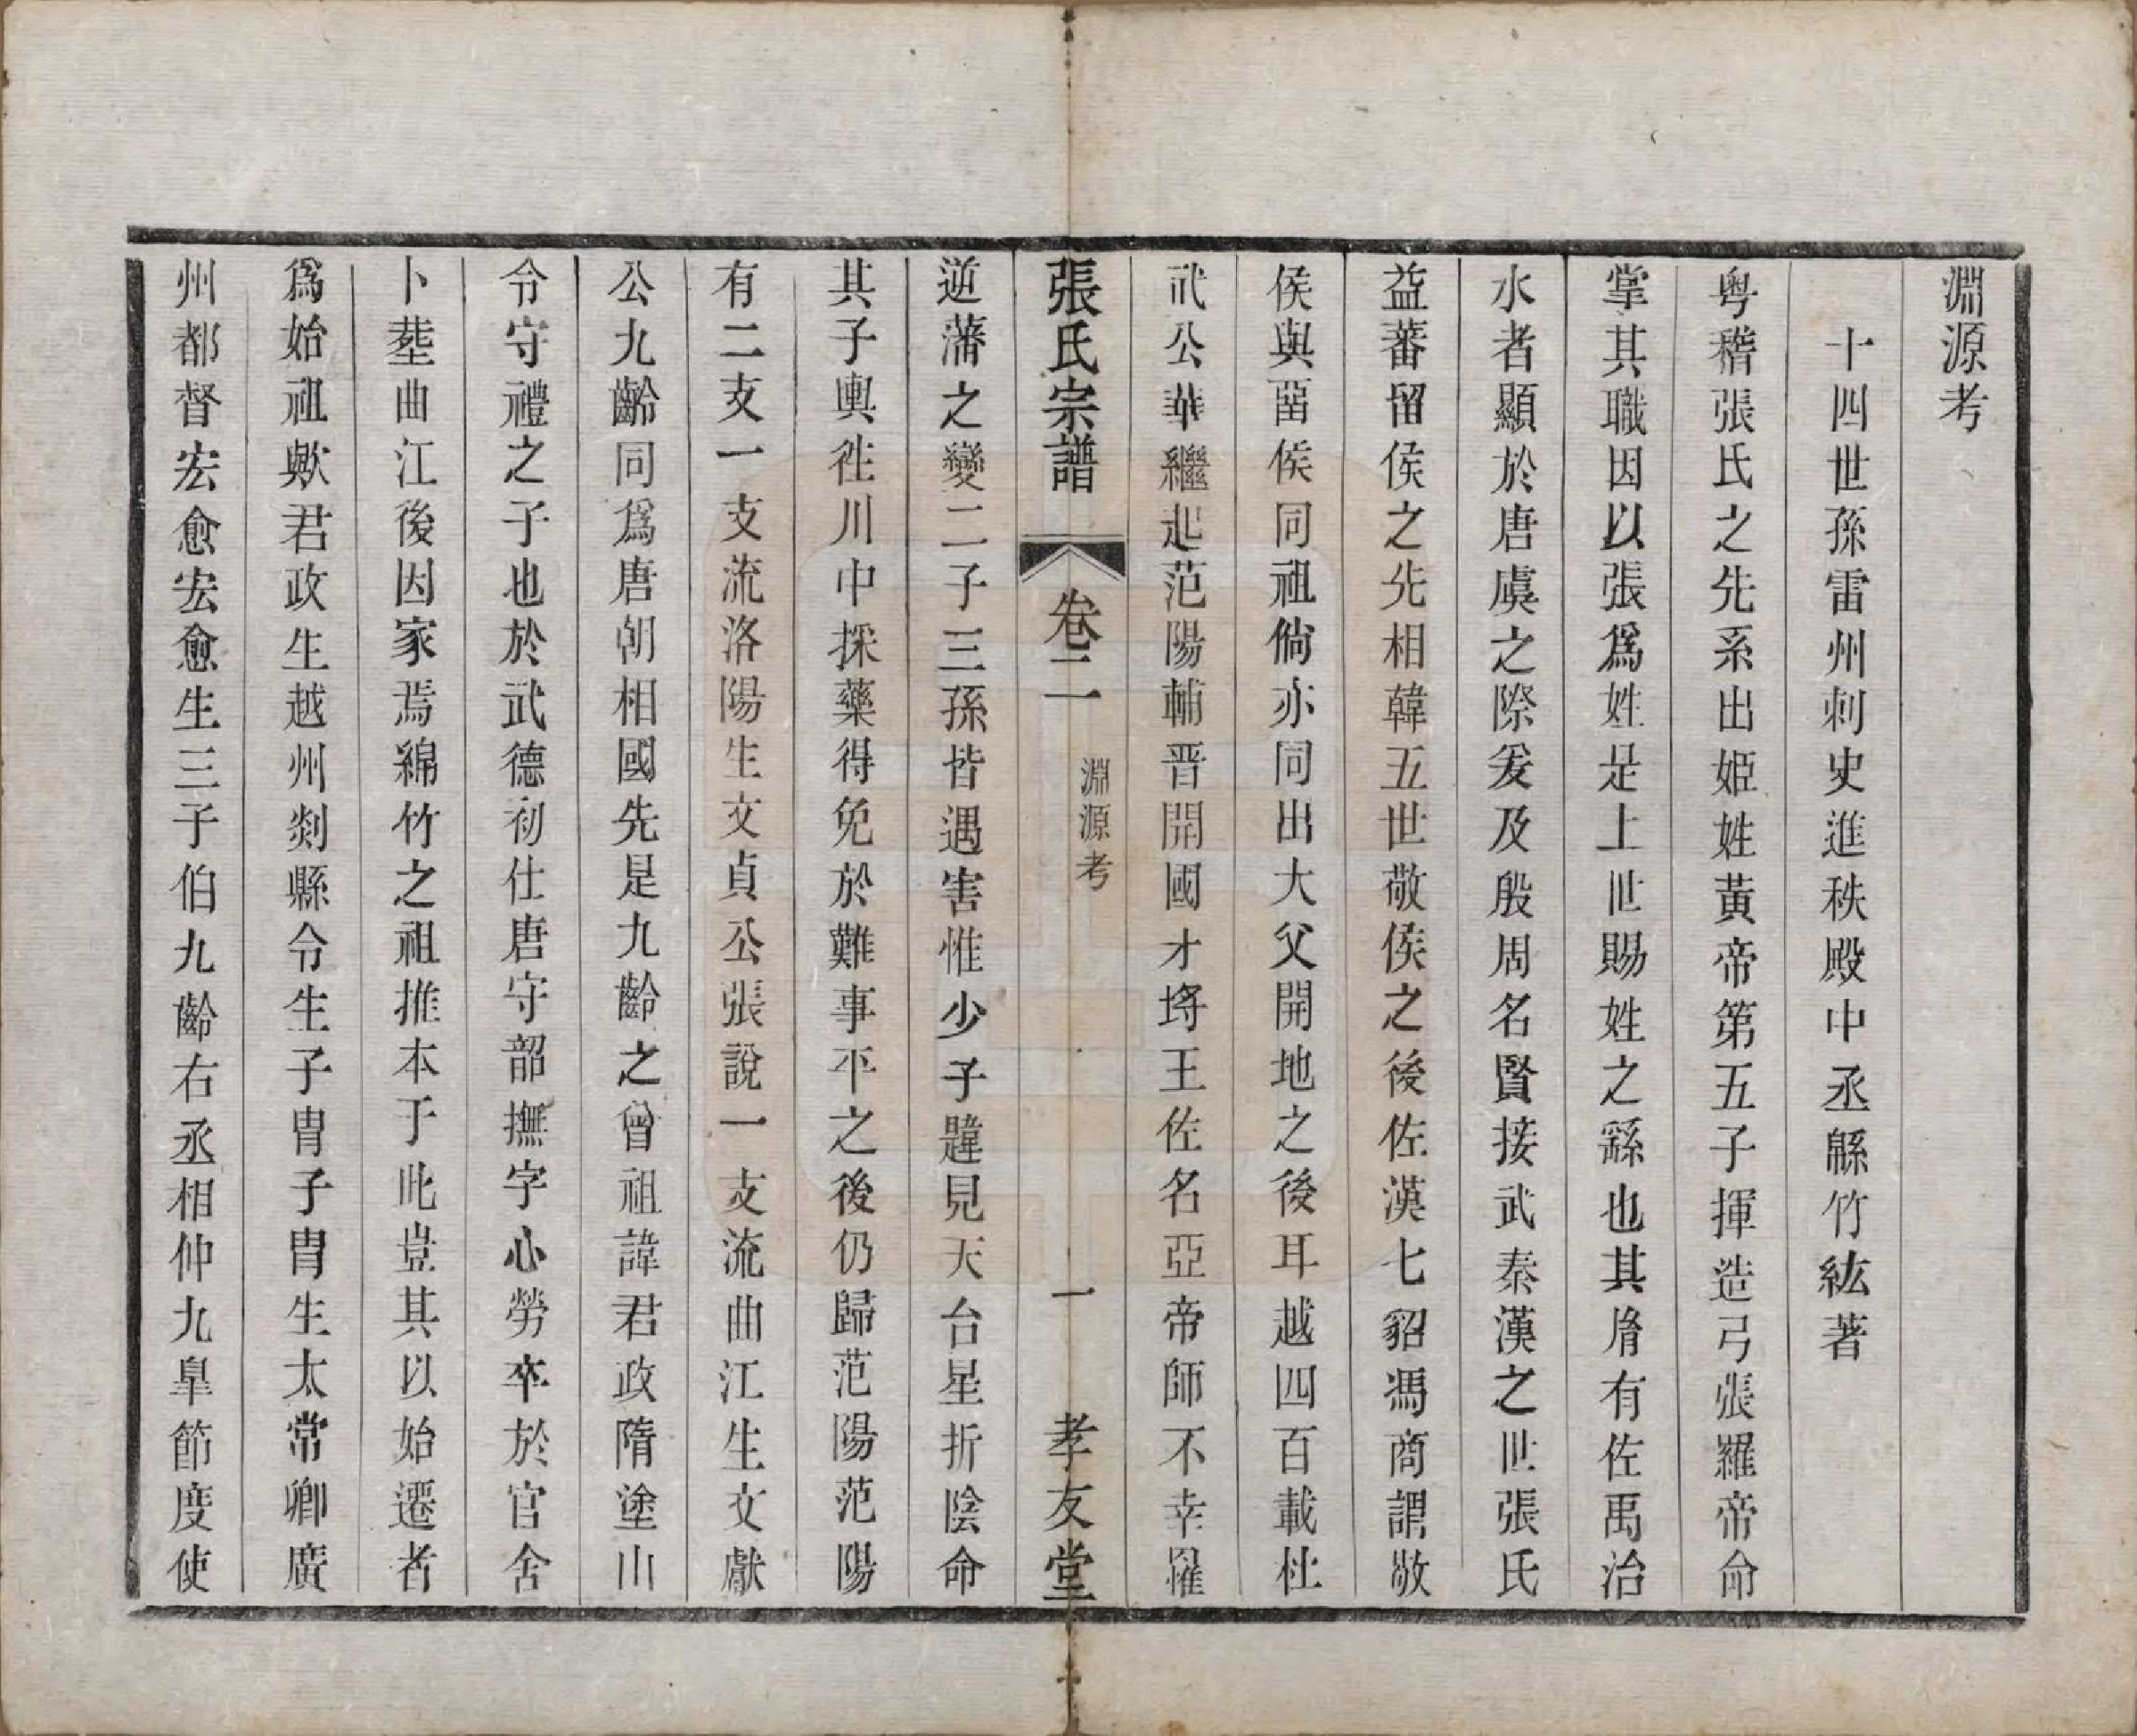 淵源考
十四世孫雷州刺史進秩殿中丞緜竹紘著
粤稽張氏之先系出姬姓黃帝第五子揮造弓張羅帝命
掌其職因以張爲姓是上世賜姓之繇也其胤有佐禹治
水者顯於唐虞之際爰及殷周名賢接武秦漢之世張氏
益蕃留侯之先相韓五世敬侯之後佐漢七貂馮商謂敬
侯與留侯同祖倘亦同出大父開地之後耳越四百載杜
武公華繼起范陽輔晋開國才埒王佐名亞帝師不幸罹
逆藩之變二子三孫皆遇害惟少子韙見天台星折陰命
其子輿徃川中採藥得免於難事平之後仍歸范陽范陽
有二支一支流洛陽生文貞公張說一支流曲江生文獻
公九齡同爲唐朝相國先是九齡之曾祖諱君政隋塗山
令守禮之子也於武德初仕唐守韶撫字心勞卒於官舍
卜塟曲江後因家焉綿竹之祖推本于此豈其以始遷者
爲始祖歟君政生越州剡縣令生子胄子胄生太常卿廣
州都督宏愈宏愈生三子伯九齡右丞相仲九皐節度使
張氏宗譜
卷二
淵源考
一
孝友堂